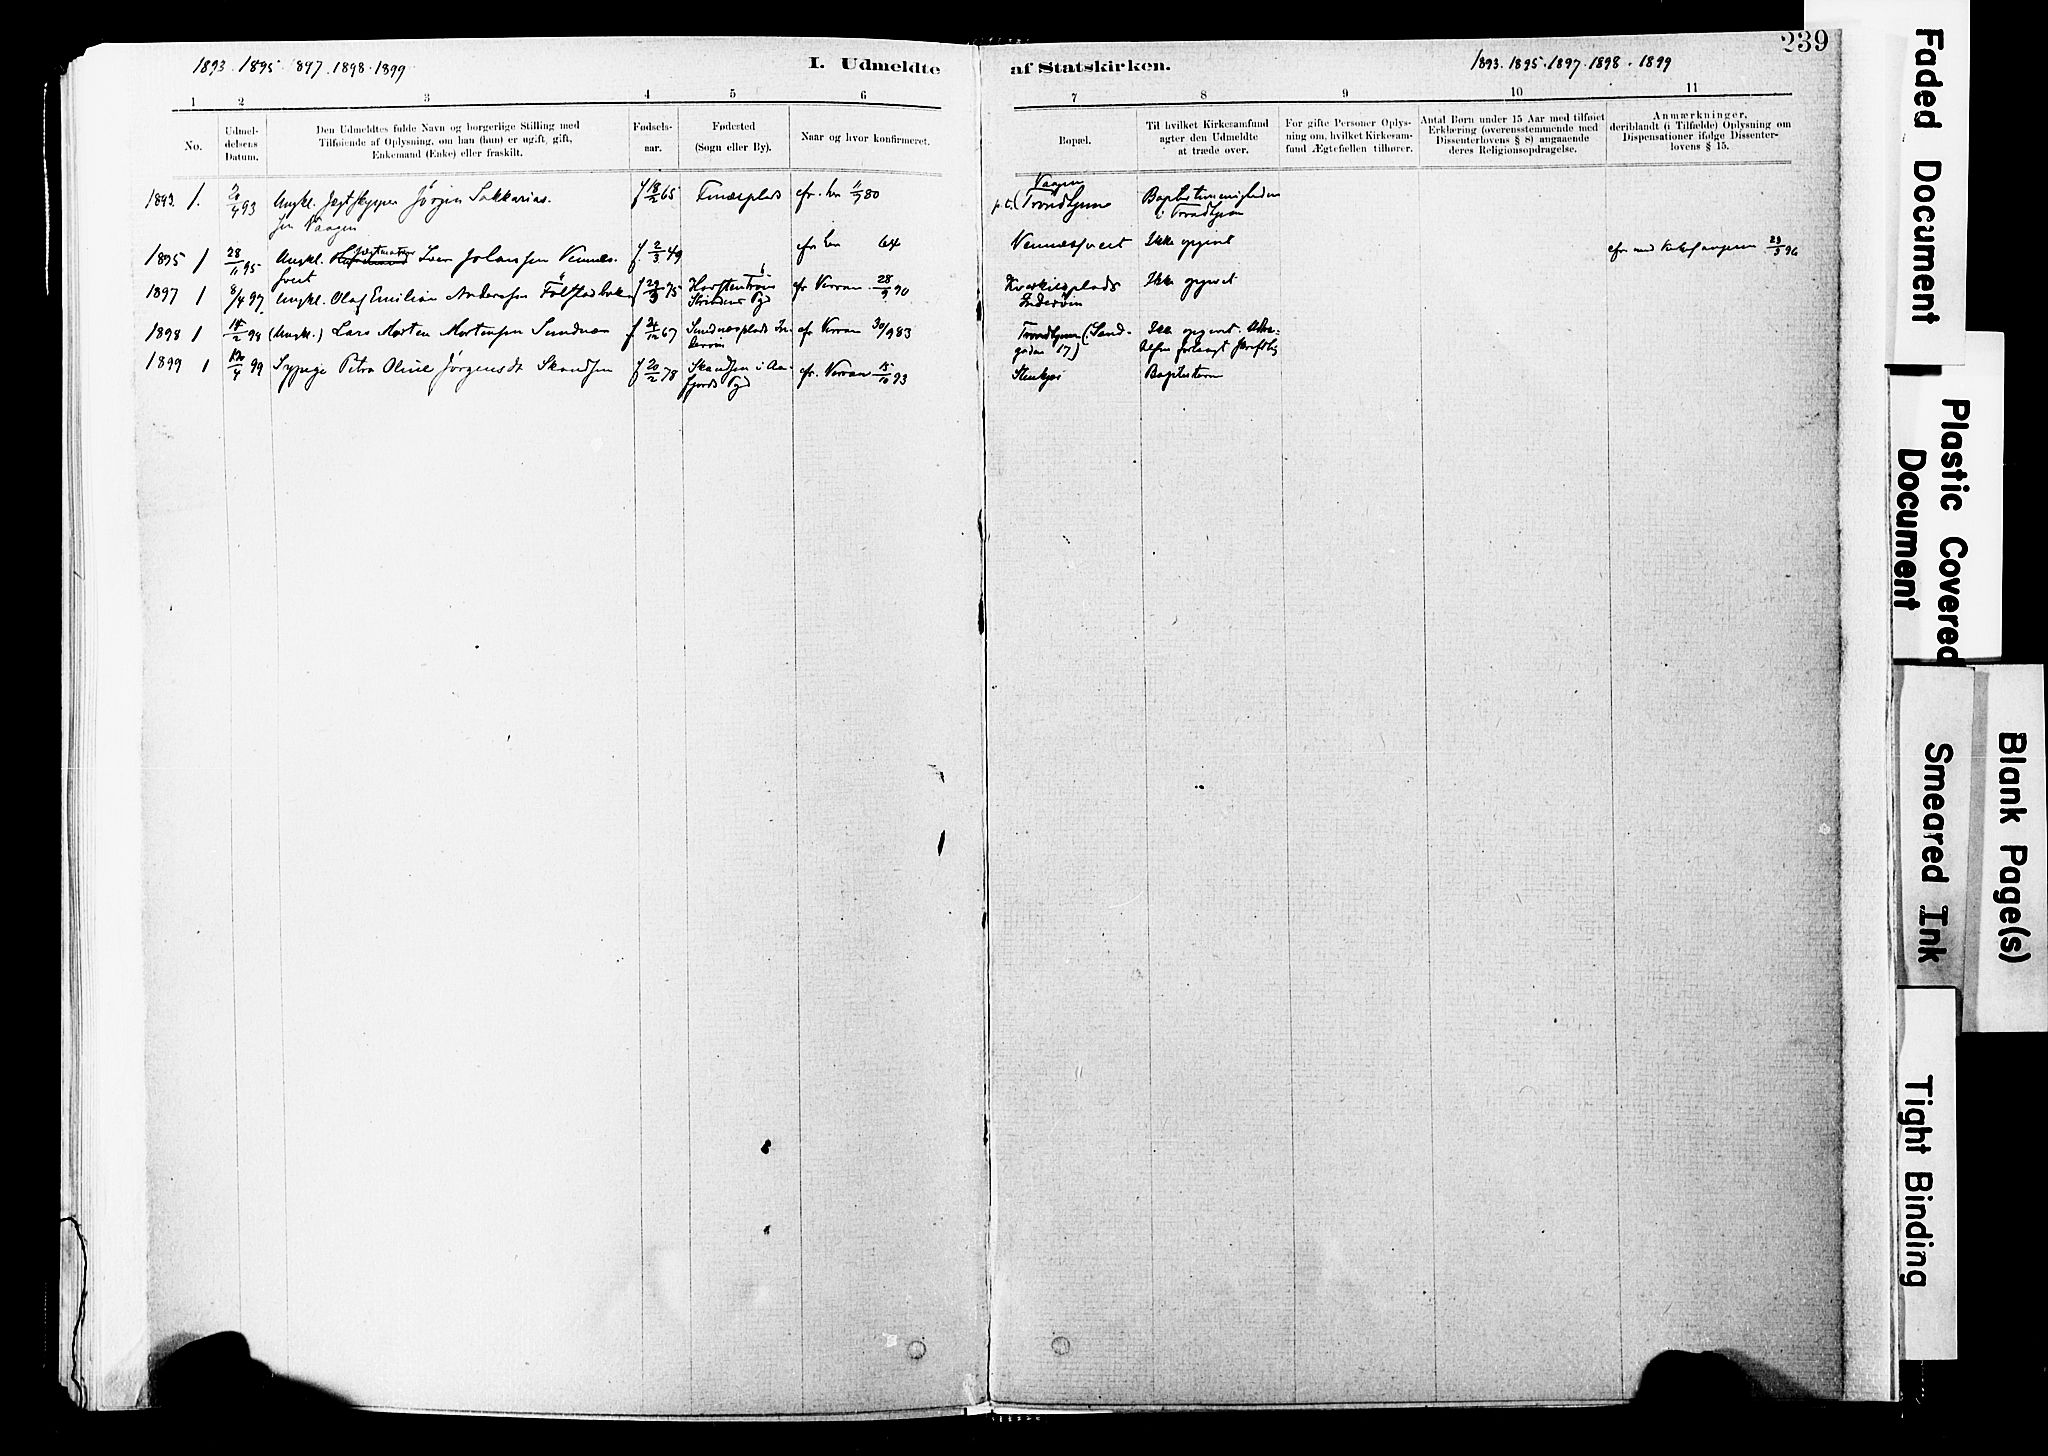 239
1893. 1895. 1897. 1898. 1899
I. Udmeldte af Statskirken.
1893. 1895. 1897. 1898. 1899
1 2 3 4 5 6 7 8 9 10 11
No.
Udmel-
delsens
Datum.
Den Udmeldtes fulde Navn og borgerlige Stilling med
Tilføiende af Oplysning, om han (hun) er ugift, gift,
Enkemand (Enke) eller fraskilt.
Fødsels-
aar.
Fødested
(Sogn eller By).
Naar og hvor konfirmeret.
Bopæl.
Til hvilket Kirkesamfund
agter den Udmeldte
at træde over.
For gifte Personer Oplys-
ning om, hvilket Kirkesam-
fund Ægtefællen tilhører.
Antal Børn under 15 Aar med tilføiet
Erklæring (overensstemmende med
Dissenterlovens § 8) angaaende
deres Religionsopdragelse.
Anmærkninger,
deriblandt (i Tilfælde) Oplysning om
Dispensationer ifølge Dissenter-
lovens § 15.
1893. 1. 93 Ungkl. Jægtskipper Jørgen Sakkarias-
sen Vaagen
f 18/2 65 cfr. her 80
Vaagen
p.t. (Trondhjem
i Trondhjem
1895 1 28/11 95 Ungkl. Iver Johansen Vennes-
hveit
f. 2/3 49 cfr her 64 Venneshveit Ikke opgivet
1897 1 8/4 97 Ungkl. Olaf Emilian Anderssen
75
Strindens Pgd
cfr Verran 28/9 90
Inderøen
Ikke opgivet
1898 1 14/2 98 (Ungkl.) Lars Morten Mortensen Sundnæs
f. 24/12 67 Sundnæsplads In-
derøen
cfr Verran 30/9 83
Trondhjem (Sand-
gaden 17)
Ikke opgivet.
forlangt skriftlig
1899 1 99 Sypige Petra Oline Jørgensdt Skandsen
f 20/2 78 Skandsen i Aa-
fjords Pgd
cfr. Verran 15/10 93
Stenkjær Baptisterne
Faded Document
Plastic Covered
Document
Blank Page(s)
Smeared Ink
Tight Binding